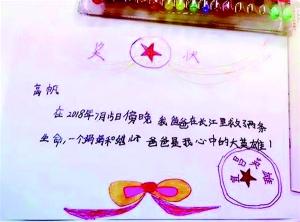 奖 状
高帆
在2018年7月15日傍晚 我爸爸在长江里救了两条
生命,一个妈妈和 爸爸是我心中的大英雄!